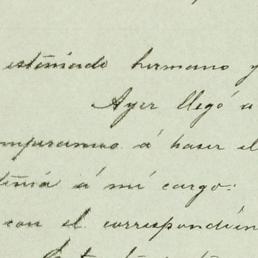 estimado hermano y
Ayer llegó a
á haser el
á mi cargo:
con el correspondien